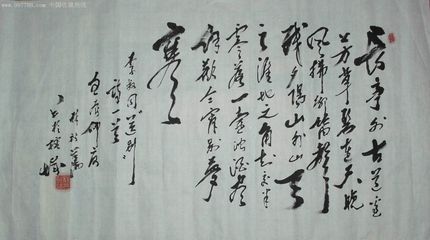 www.997788.com 中国收藏热线
长亭外古道边
芳草碧连天晚
风拂柳笛声
残夕阳山外山天
之涯地之角知交半
零落一壶浊酒尽
余欢今宵别梦
寒
李叔同送别
诗一首